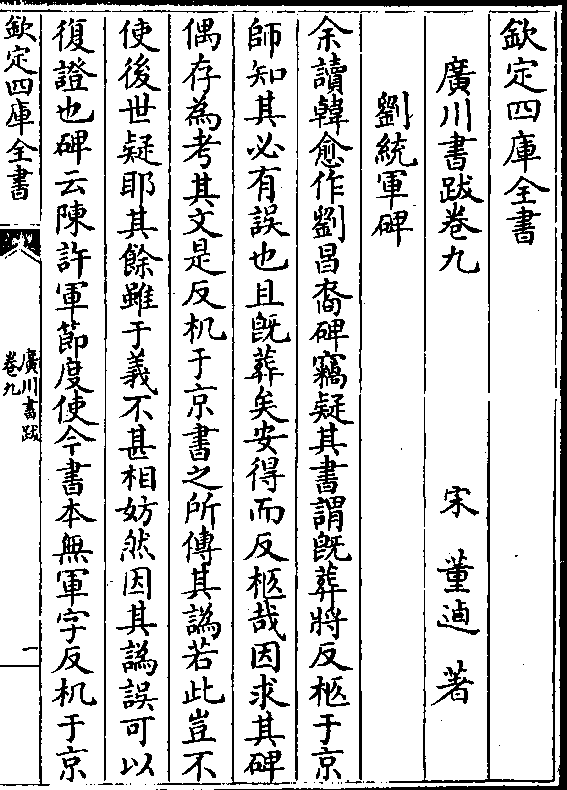 欽定四庫全書
廣川書跋卷九
宋 董逌 著
劉統軍碑
余讀韓愈作劉昌裔碑竊疑其書謂既葬將反柩于京
師知其必有誤也且既葬矣安得而反柩哉因求其碑
偶存為考其文是反机于京書之所傳其譌若此豈不
使後世疑耶其餘雖于義不甚相妨然因其譌誤可以
復證也碑云陳許軍節度使今書本無軍字反机于京
欽定四庫全書
廣川書跋
卷九
一